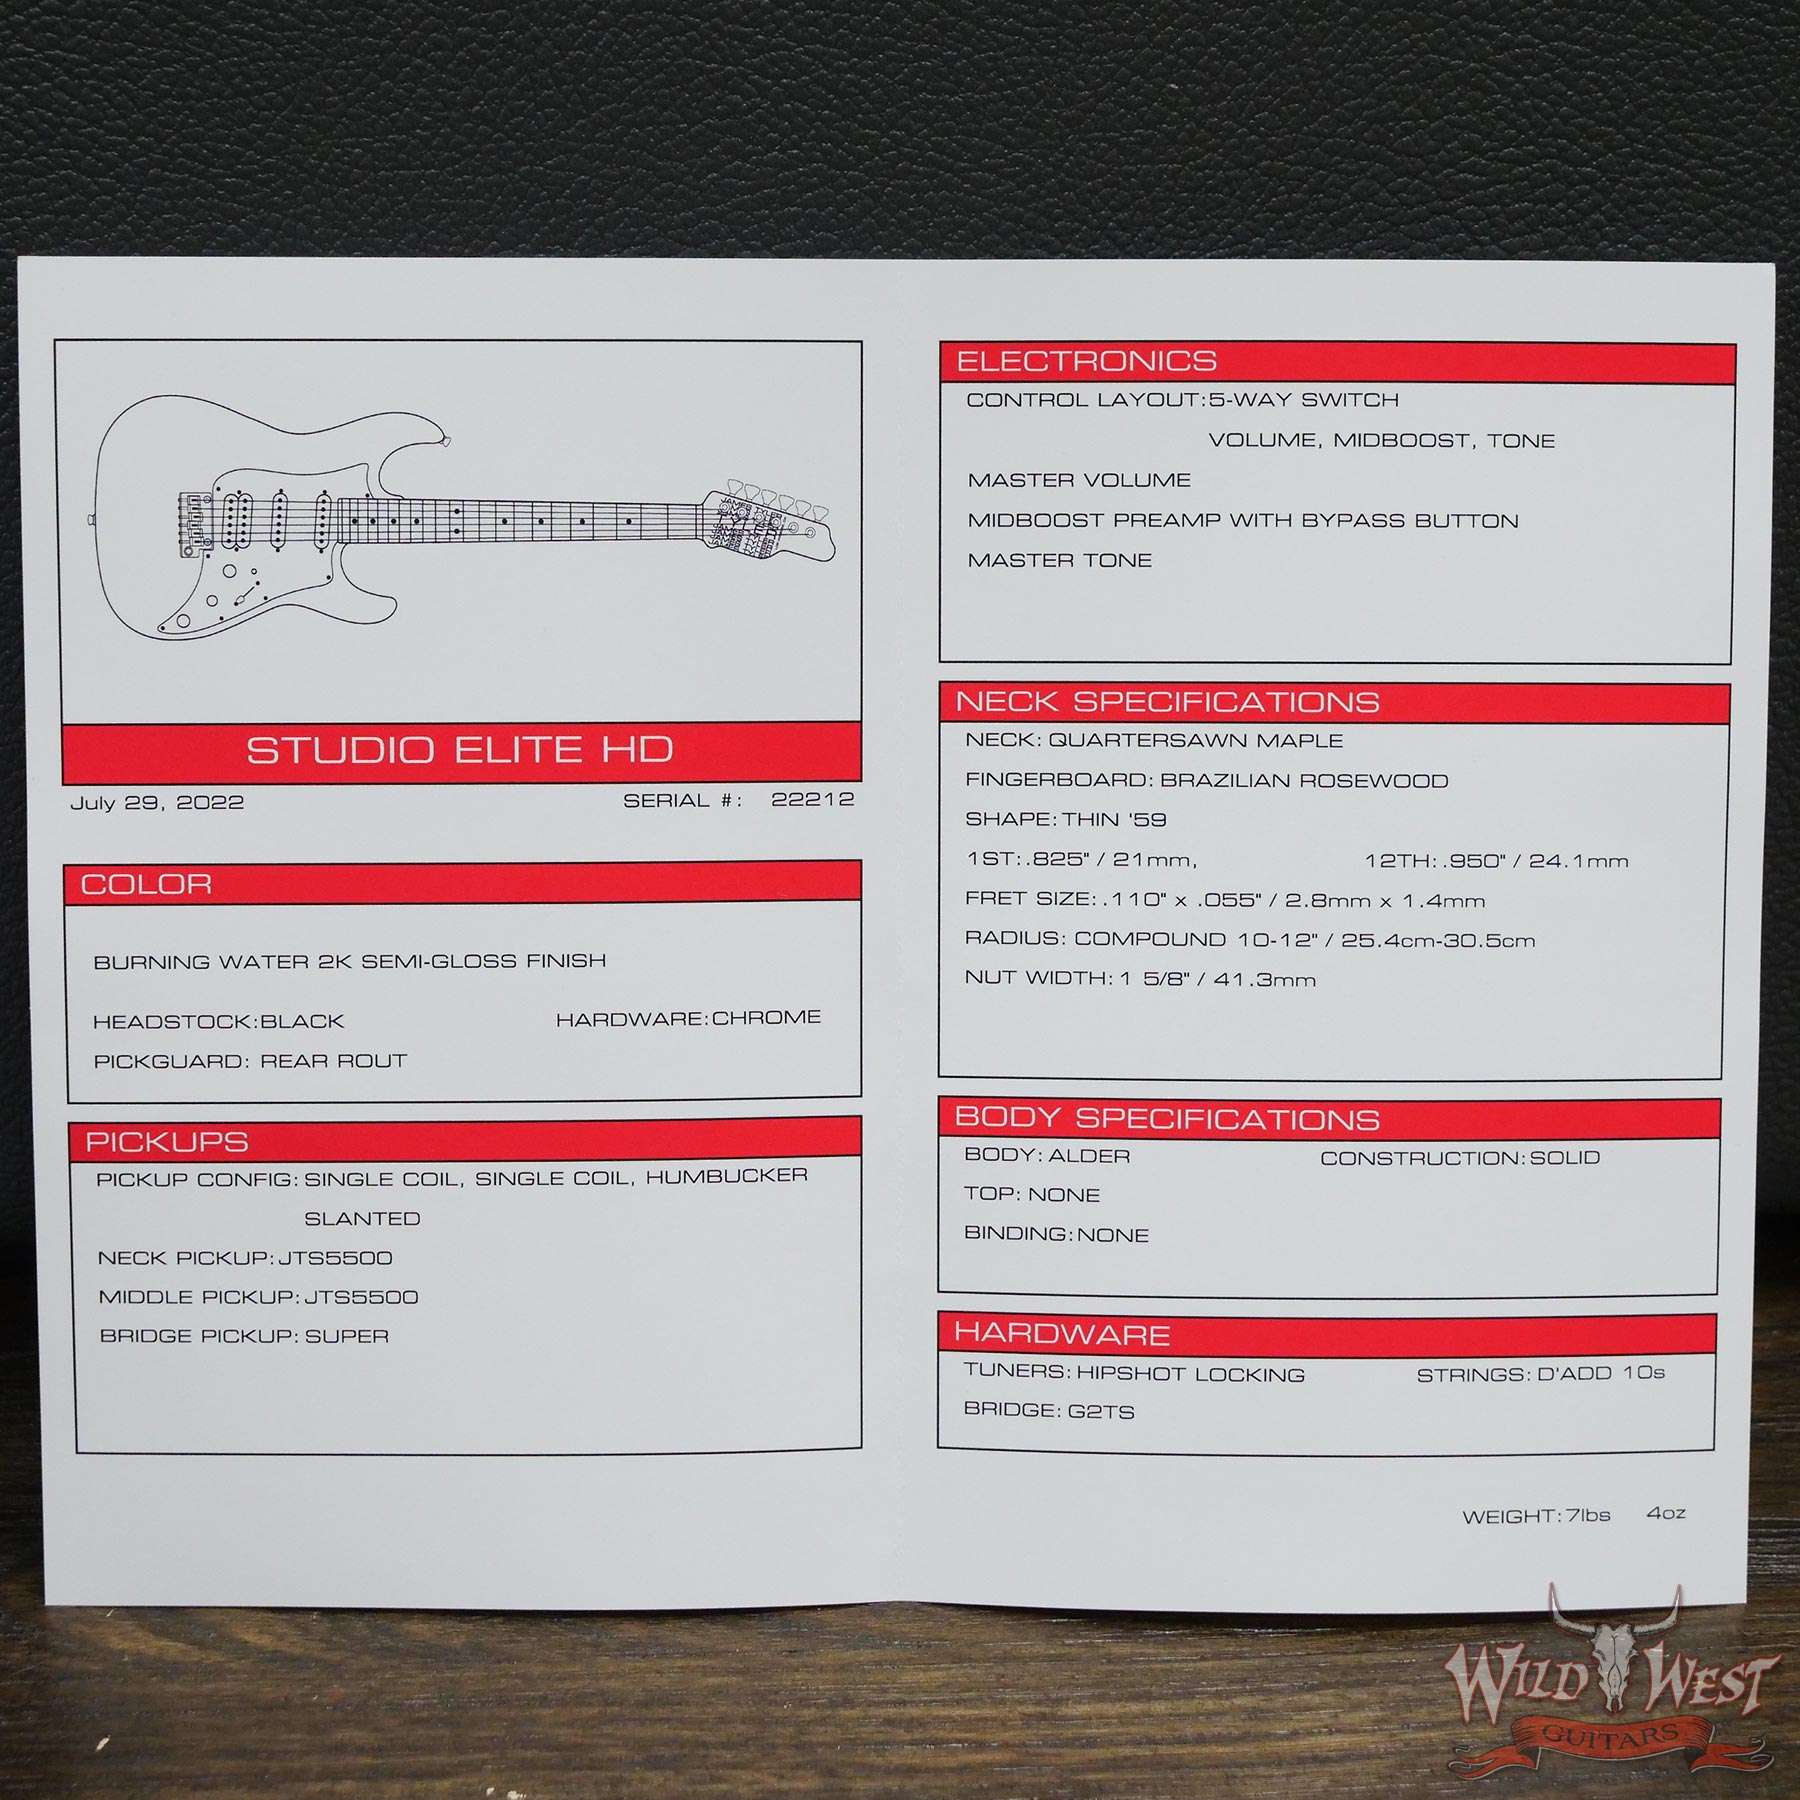 STUDIO ELITE HD
July 29, 2022 SERIAL #: 22212
COLOR
BURNING WATER 2K SEMI-GLOSS FINISH
HEADSTOCK: BLACK HARDWARE: CHROME
PICKGUARD: REAR ROUT
PICKUPS
PICKUP CONFIG: SINGLE COIL, SINGLE COIL, HUMBUCKER
SLANTED
NECK PICKUP: JTS5500
MIDDLE PICKUP: JTS5500
BRIDGE PICKUP: SUPER
ELECTRONICS
CONTROL LAYOUT: 5-WAY SWITCH
VOLUME, MIDBOOST, TONE
MASTER VOLUME
MIDBOOST PREAMP WITH BYPASS BUTTON
MASTER TONE
NECK SPECIFICATIONS
NECK: QUARTERSAWN MAPLE
FINGERBOARD: BRAZILIAN ROSEWOOD
SHAPE: THIN '59
1ST: .825" / 21mm, 12TH: .950" / 24.1mm
FRET SIZE: .110" x .055" / 2.8mm x 1.4mm
RADIUS: COMPOUND 10-12" / 25.4cm-30.5cm
NUT WIDTH: 1 5/8" / 41.3mm
BODY SPECIFICATIONS
BODY: ALDER CONSTRUCTION: SOLID
TOP: NONE
BINDING: NONE
HARDWARE
TUNERS: HIPSHOT LOCKING STRINGS: D'ADD 10s
BRIDGE: G2TS
WEIGHT: 7lbs 4oz
WILD WEST
GUITARS